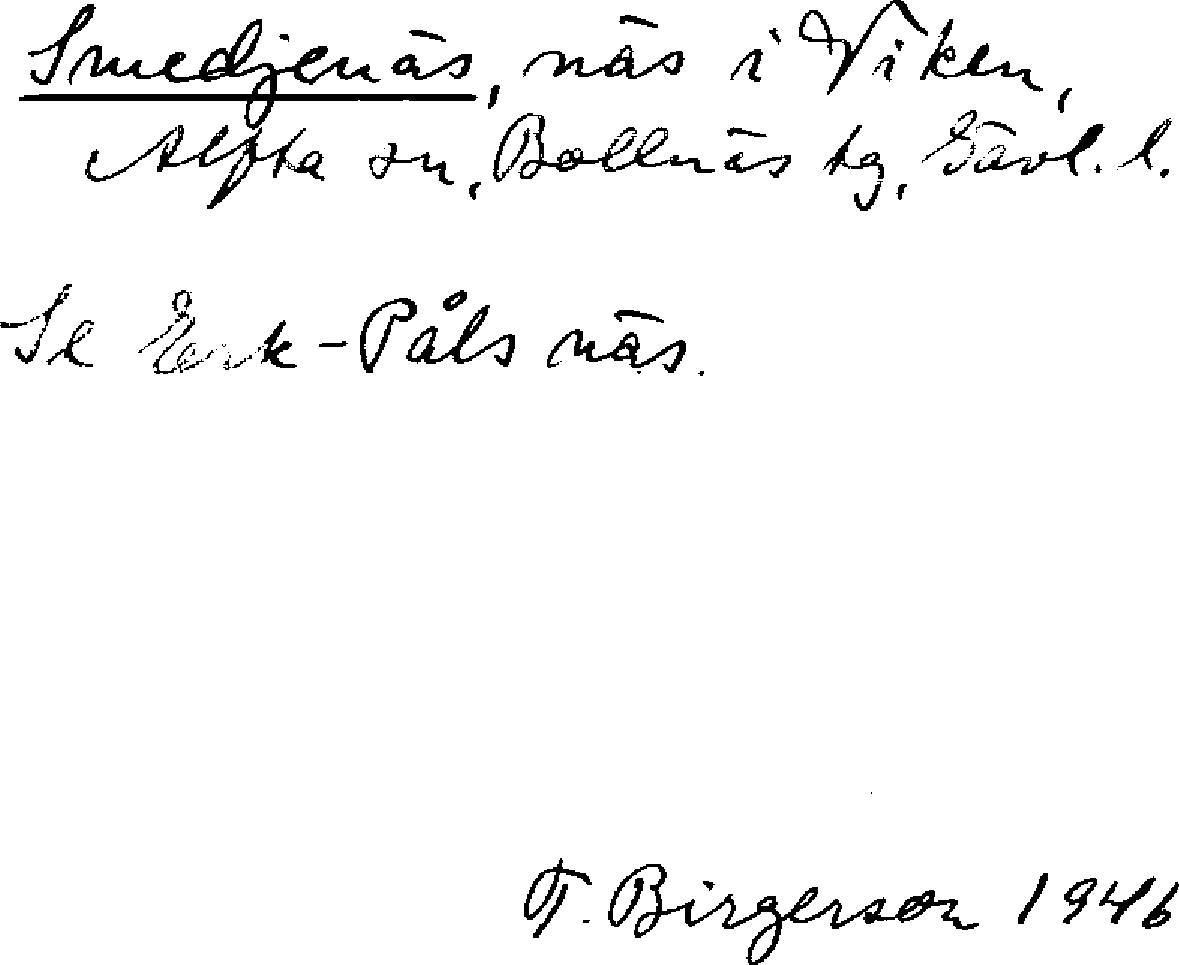 Smedjenäs, näs i Viken,
Alfta sn, Bollnäs tg, Gävl. l.
Se Erk-Påls näs.
T. Birgerson 1946